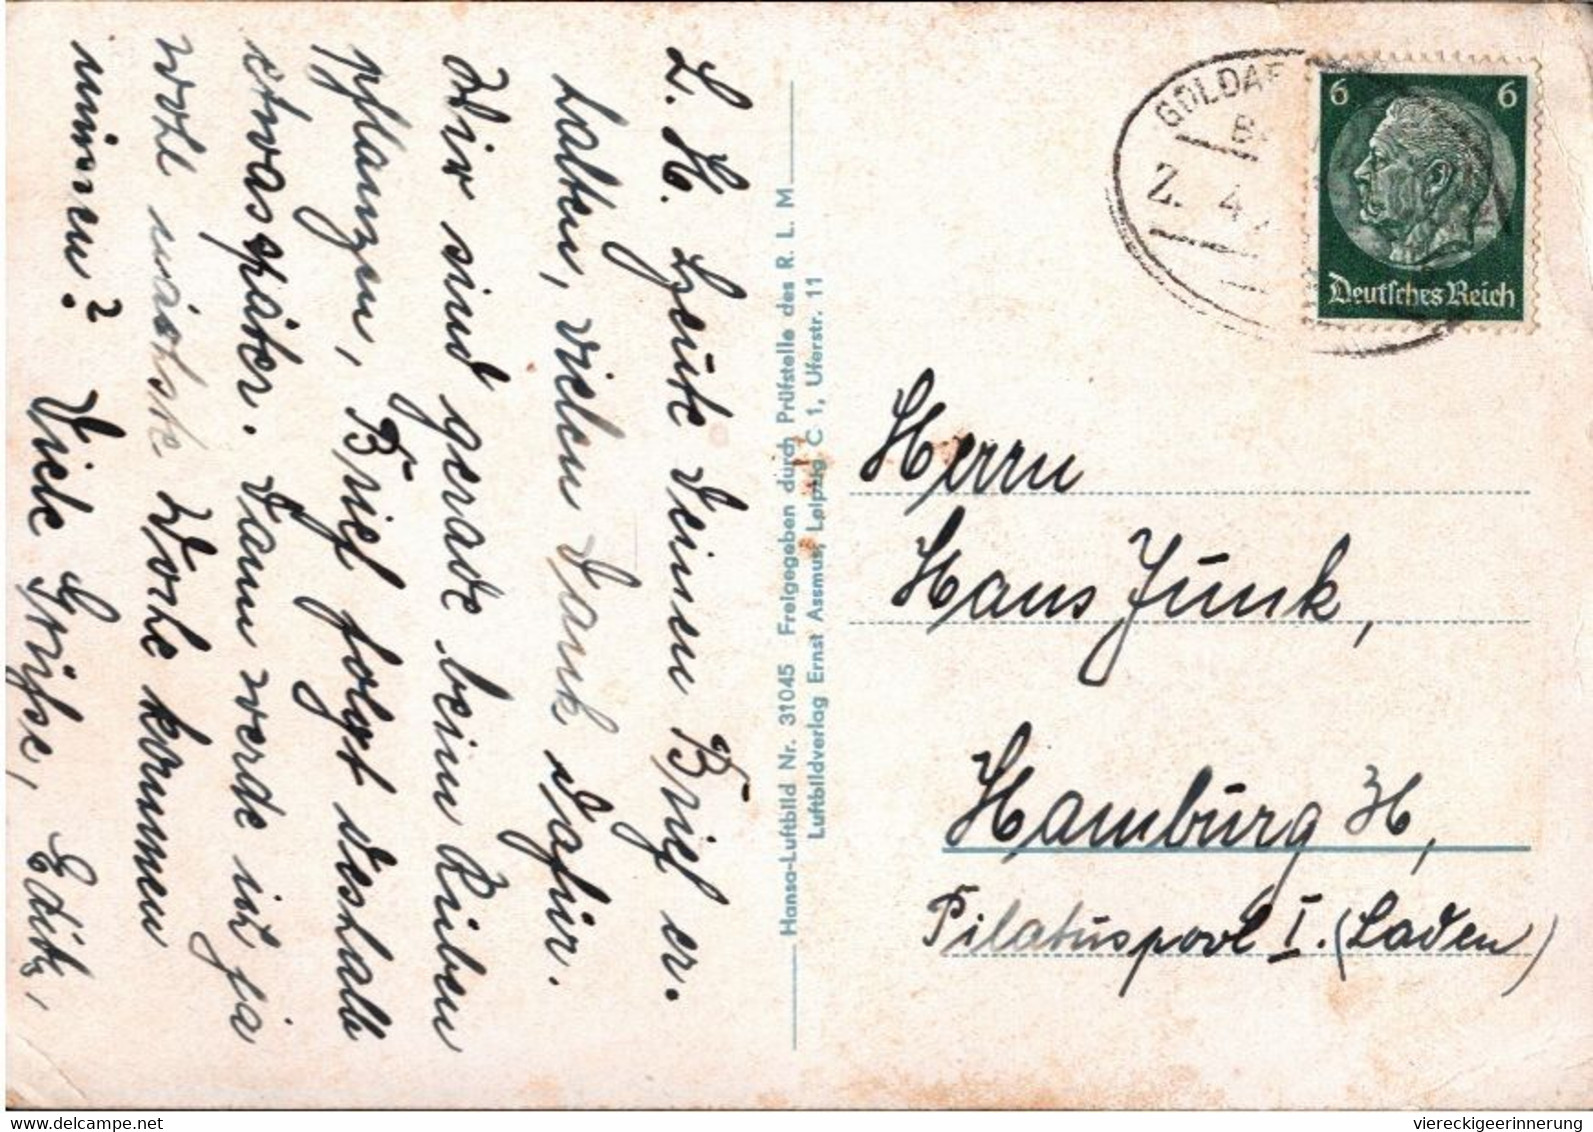 L. H. Heute Deinen Brief er-
halten, vielen Dank dafür.
Wir sind gerade beim Rüben
pflanzen, Brief folgt deshalb
etwas später. Dann werde ich ja
wohl nächste Woche kommen
müssen? Viele Grüsse, Edith,
Hansa-Luftbild Nr. 31045 Freigegeben durch Prüfstelle des R. L. M.
Luftbildverlag Ernst Assmus, Leipzig C 1, Uferstr. 11
GOLDAP
Z. 4
6 6
Deutsches Reich
Herrn
Hans Junk,
Hamburg H,
Pilatuspool I. (Laden)
viereckigeerinnerung